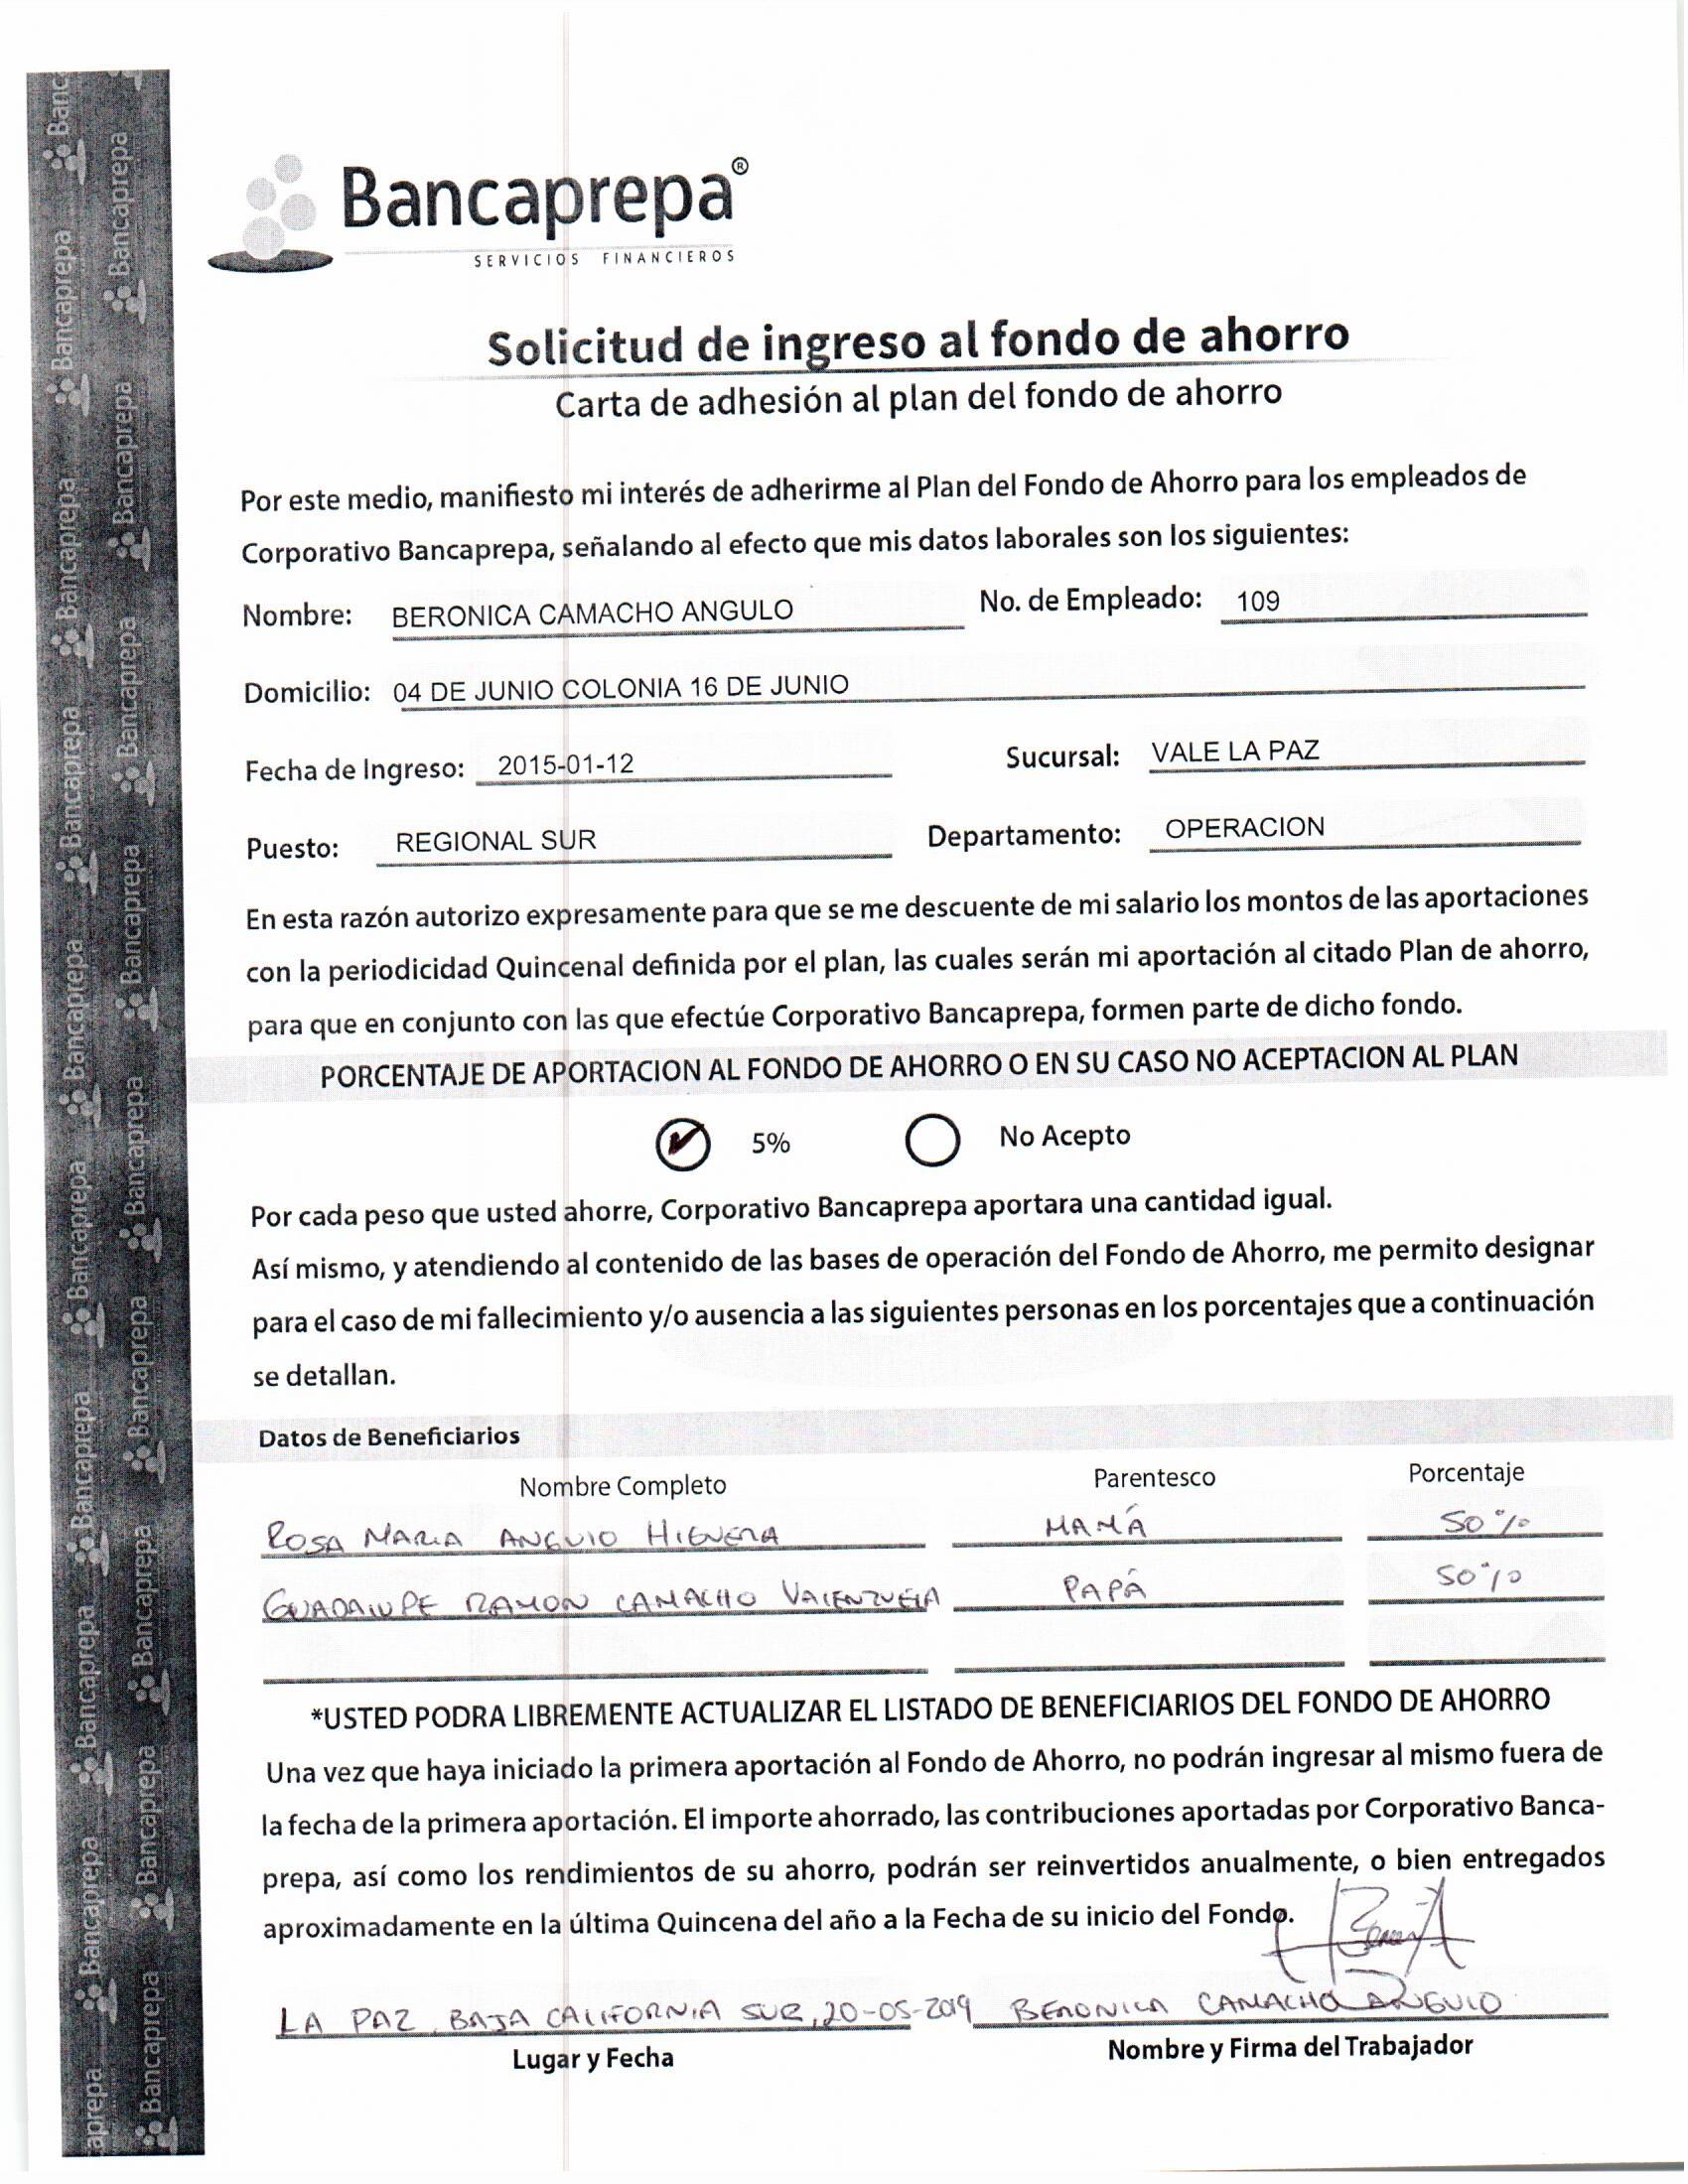 Bancaprepa®
SERVICIOS FINANCIEROS
Solicitud de ingreso al fondo de ahorro
Carta de adhesión al plan del fondo de ahorro
Por este medio, manifiesto mi interés de adherirme al Plan del Fondo de Ahorro para los empleados de
Corporativo Bancaprepa, señalando al efecto que mis datos laborales son los siguientes:
Nombre: BERONICA CAMACHO ANGULO No. de Empleado: 109
Domicilio: 04 DE JUNIO COLONIA 16 DE JUNIO
Fecha de Ingreso: 2015-01-12 Sucursal: VALE LA PAZ
Puesto: REGIONAL SUR Departamento: OPERACION
En esta razón autorizo expresamente para que se me descuente de mi salario los montos de las aportaciones
con la periodicidad Quincenal definida por el plan, las cuales serán mi aportación al citado Plan de ahorro,
para que en conjunto con las que efectúe Corporativo Bancaprepa, formen parte de dicho fondo.
PORCENTAJE DE APORTACION AL FONDO DE AHORRO O EN SU CASO NO ACEPTACION AL PLAN
5% No Acepto
Por cada peso que usted ahorre, Corporativo Bancaprepa aportara una cantidad igual.
Así mismo, y atendiendo al contenido de las bases de operación del Fondo de Ahorro, me permito designar
para el caso de mi fallecimiento y/o ausencia a las siguientes personas en los porcentajes que a continuación
se detallan.
Datos de Beneficiarios
Nombre Completo Parentesco Porcentaje
ROSA MARIA ANGULO HIGUERA MAMÁ 50%
GUADALUPE RAMON CAMACHO VALENZUELA PAPÁ 50%
*USTED PODRA LIBREMENTE ACTUALIZAR EL LISTADO DE BENEFICIARIOS DEL FONDO DE AHORRO
Una vez que haya iniciado la primera aportación al Fondo de Ahorro, no podrán ingresar al mismo fuera de
la fecha de la primera aportación. El importe ahorrado, las contribuciones aportadas por Corporativo Banca-
prepa, así como los rendimientos de su ahorro, podrán ser reinvertidos anualmente, o bien entregados
aproximadamente en la última Quincena del año a la Fecha de su inicio del Fondo.
LA PAZ, BAJA CALIFORNIA SUR, 20-05-2019 BERONICA CAMACHO ANGULO
Lugar y Fecha Nombre y Firma del Trabajador